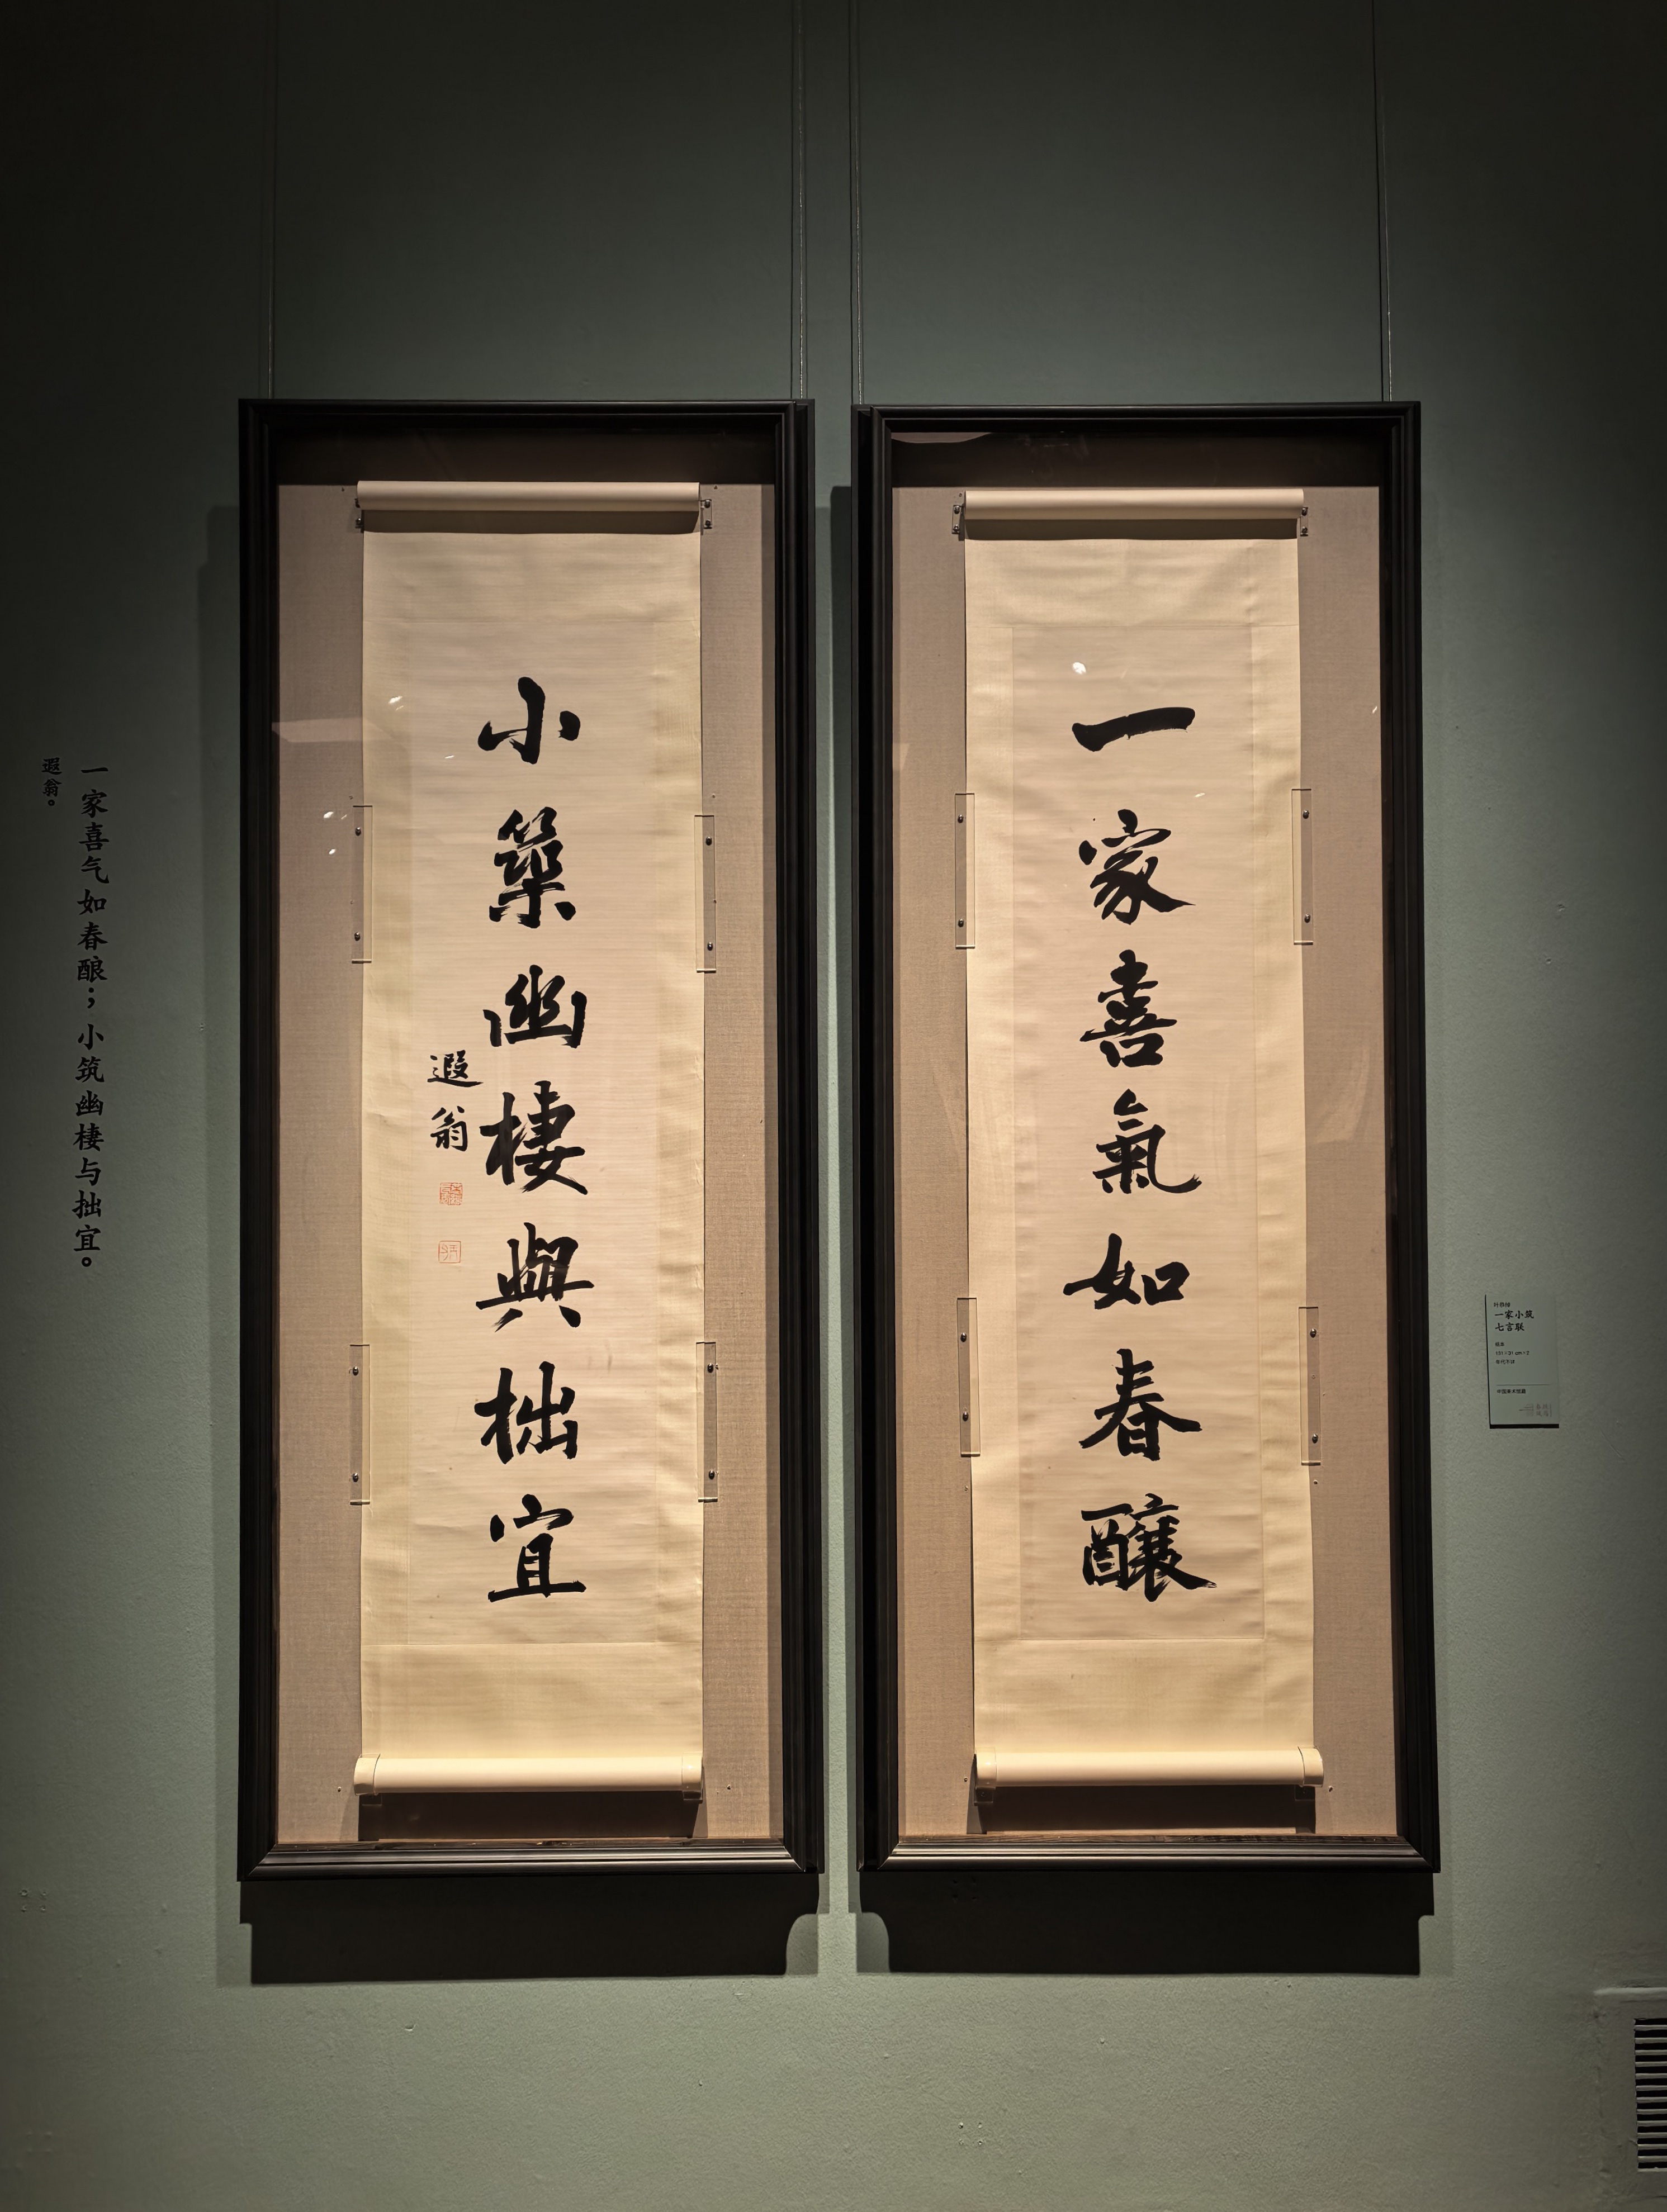 一家喜氣如春釀
小築幽棲與拙宜
遐翁
一家喜气如春酿；小筑幽棲与拙宜。
遐翁。
叶恭绰
一家小筑
七言联
纸本
131×31 cm×2
年代不详
中国美术馆藏